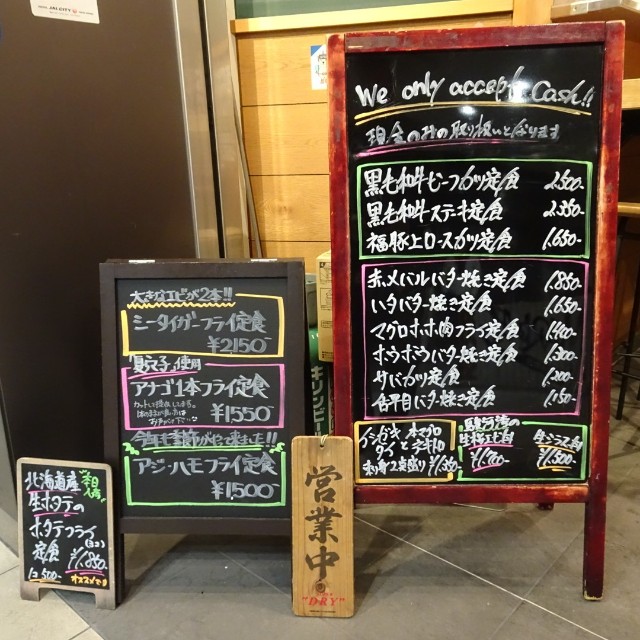 JAL CITY
大きなエビが2本!!
シータイガーフライ定食
¥2150-
夏京子使用
アナゴ1本フライ定食
¥1550-
今年も季節がやって来ました!!
アジ・ハモフライ定食
¥1,500-
北海道産
本日入荷!
生ホタテの
ホタテフライ
定食
¥1,850-
1コ500-
オススメです
営業中
"DRY"
キリンビー
We only accept Cash!!
現金のみの取り扱いとなります
黒毛和牛ビーフカツ定食 2,500-
黒毛和牛ステーキ定食 2,350-
福豚上ロースカツ定食 1,650-
赤メバルバター焼き定食 1,850-
いサバター焼き定食 1,650-
マグロホホ肉フライ定食 1,400-
ホウボウバター焼き定食 1,300-
サバカツ定食 1,200-
舌平目バター焼き定食 1,150-
イシガキ、本マグロ
タイと
刺身2点盛り ¥1,350
駿河湾の
生桜エビ丼
¥1,700-
生シラス丼
¥1,500-